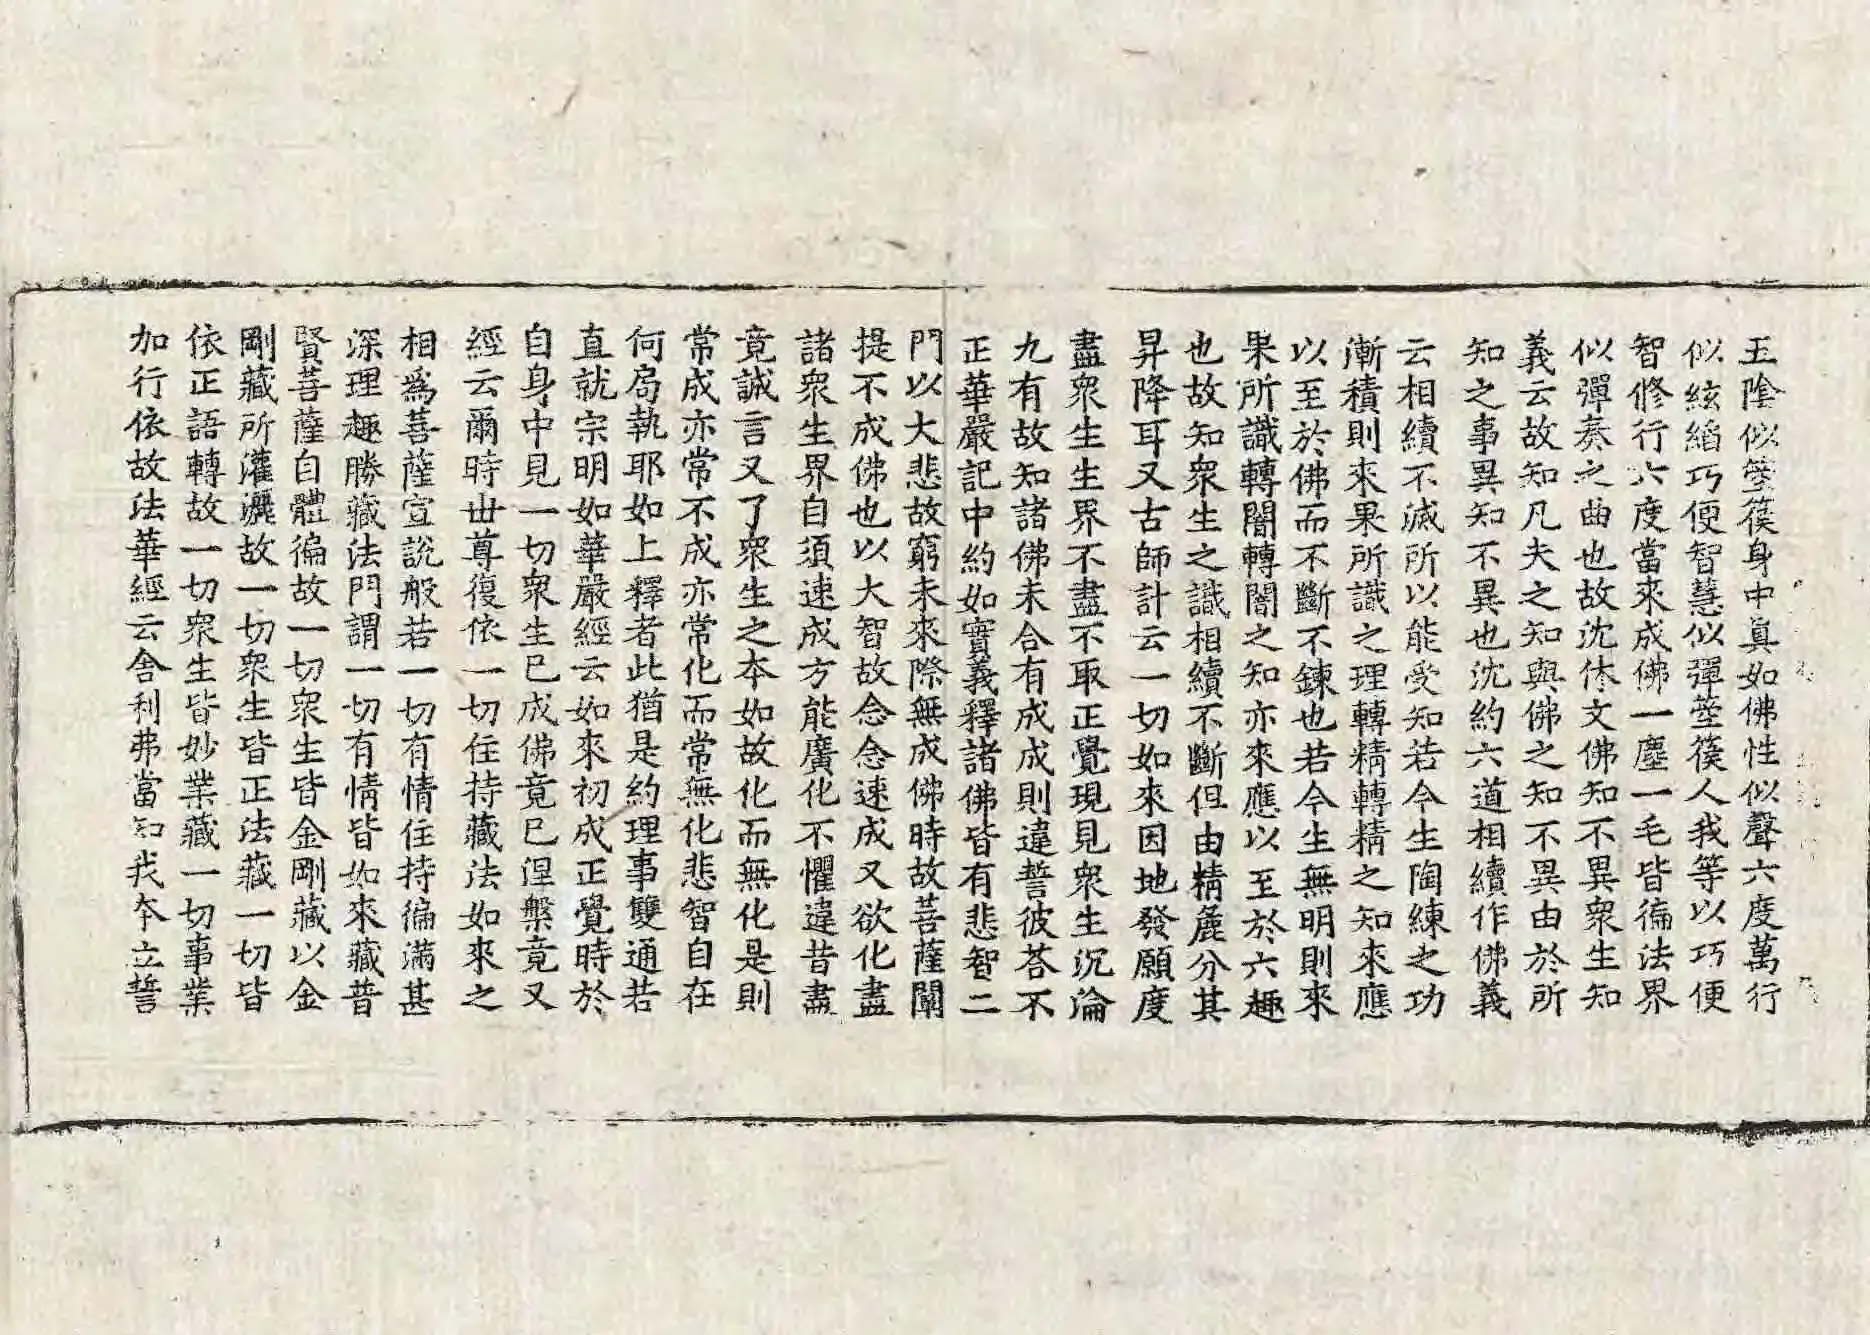 五陰似箜篌身中眞如佛性似聲六度萬行
似絃縚巧便智慧似彈箜篌人我等以巧便
智修行六度當來成佛一塵一毛皆徧法界
似彈奏之曲也故沈休文佛知不異衆生知
義云故知凡夫之知與佛之知不異由於所
知之事異知不異也沈約六道相續作佛義
云相續不滅所以能受知若今生陶練之功
漸積則來果所識之理轉精轉精之知來應
以至於佛而不斷不鍊也若今生無明則來
果所識轉闇轉闇之知亦來應以至於六趣
也故知衆生之識相續不斷但由精麁分其
昇降耳又古師計云一切如來因地發願度
盡衆生生界不盡不取正覺現見衆生沉淪
九有故知諸佛未合有成成則違誓彼荅不
正華嚴記中約如實義釋諸佛皆有悲智二
門以大悲故窮未來際無成佛時故菩薩闡
提不成佛也以大智故念念速成又欲化盡
諸衆生界自須速成方能廣化不懼違昔盡
竟誠言又了衆生之本如故化而無化是則
常成亦常不成亦常化而常無化悲智自在
何局執耶如上釋者此猶是約理事雙通若
直就宗明如華嚴經云如來初成正覺時於
自身中見一切衆生已成佛竟已涅槃竟又
經云爾時世尊復依一切住持藏法如來之
相爲菩薩宣說般若一切有情住持徧滿甚
深理趣勝藏法門謂一切有情皆如來藏普
賢菩薩自體徧故一切衆生皆金剛藏以金
剛藏所灌灑故一切衆生皆正法藏一切皆
依正語轉故一切衆生皆妙業藏一切事業
加行依故法華經云舍利弗當知我本立誓